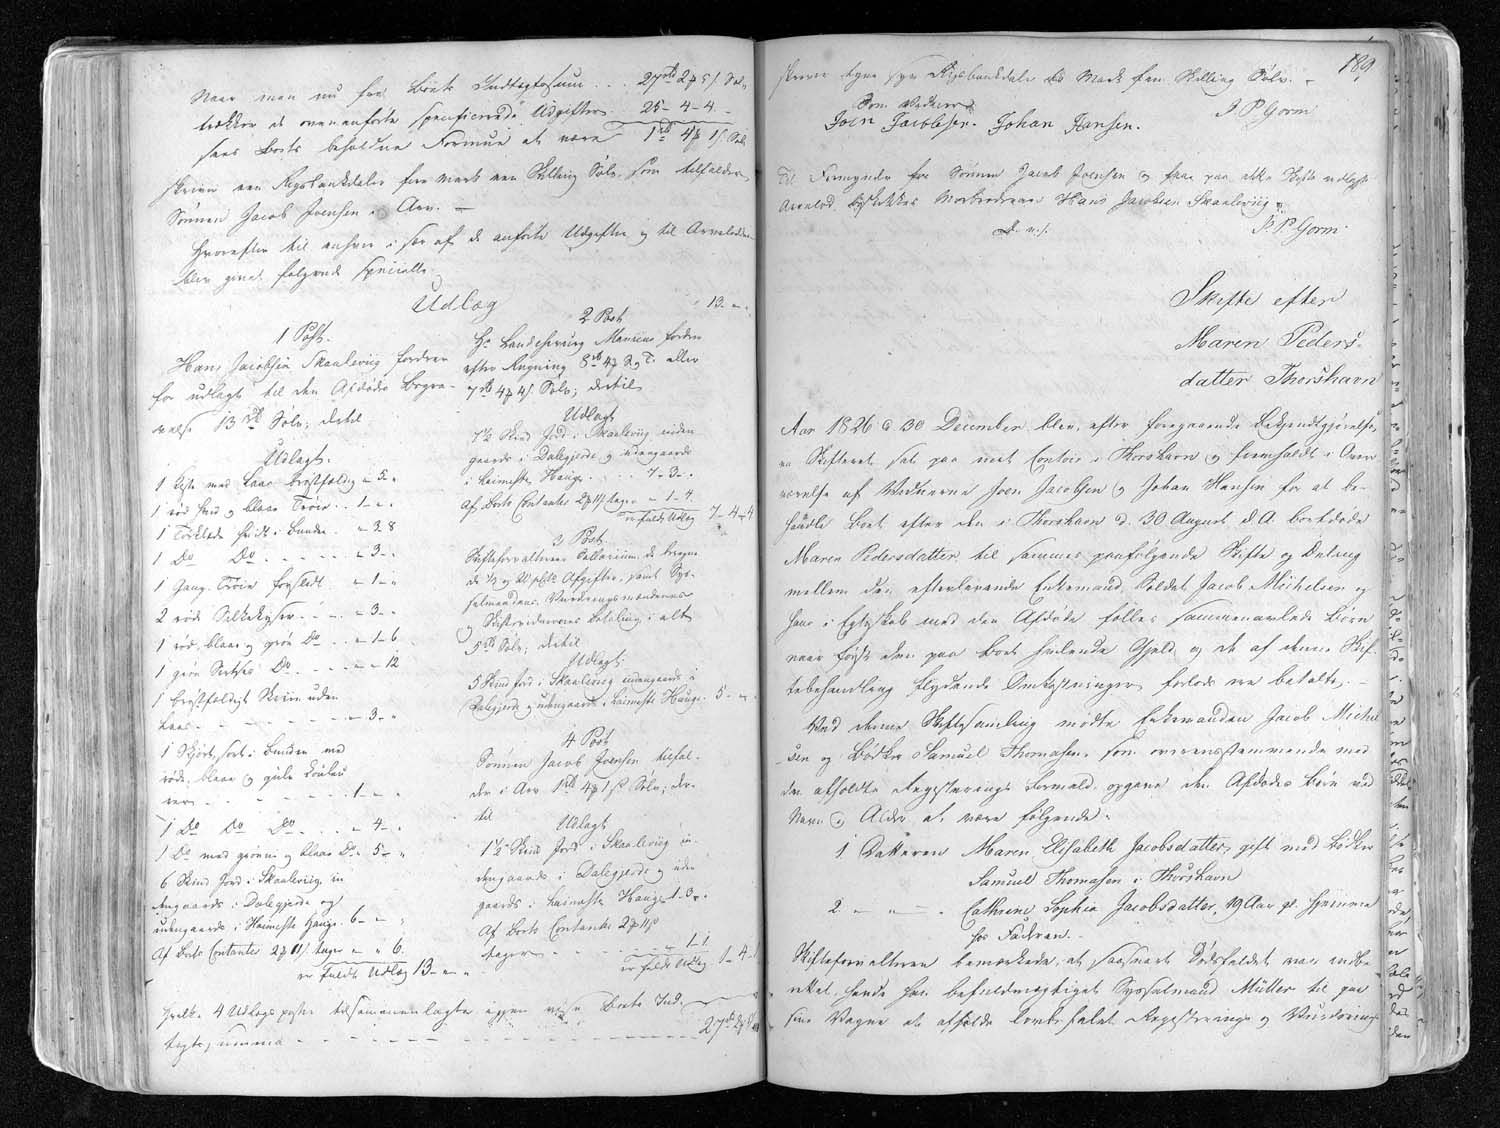 Naar man nu fra Boets Indtægtssum . . . 27 rbd 2 mk 5 s. Sølv
trækker de ovenanførte specificerede Udgifter 25 - 4 - 4. -
sees Boets beholdne Formue at være 1 rbd 4 mk 1 s. Sølv
skriver een Rigsbankdaler fire Mark een Skilling Sølv, som tilfalder
Sønnen Jacob Joensen i Arv. —
Hvorefter til enhver i sær af de anførte Udgifter og til Arvelodden
blev givet følgende specielle
Udlæg
1 Post.
Hans Jacobsen Skaalevig fordrer
for udlagt til den Afdødes Begra-
velse 13 rbd Sølv; dertil
Udlagt.
1 Kiste med Laas brøstfældig " 5 "
1 rød hued og blaae Trøie . . 1 - "
1 Tørklæde hvidt i Bunden " 3. 8
1 Do Do . . . . . . " 3 - "
1 Gang Trøie forslidt . " 1 - "
2 røde Silkehuer . . . " 3 - "
1 rød, blaae og grøn Do . . " 1 - 6
1 grøn Sirtses Do . . . . " - 12
1 brøstfældigt Skriin uden
Laas - - - - - - - " 3 - "
1 Skjørt, sort i Bunden med
røde, blaae og gule
- - - - - - 1 - "
1 Do Do Do . . . " 4 - "
1 Do med grønne og blaae Do . 5 - "
6 Skind Jord i Skaalevig, in
dengaards i Dalegjerde og
udengaards i Heimeste Hauge 6 - " - "
Af Boets Contanter 2 mk 11 s. tager " " 6.
er fuldt Udlæg 13 - " - "
13 - " - "
2 Post
Hr Landchirurg Manicus fordrer
efter Regning 8 rbd 4 mk S og T. eller
7 rbd 4 mk 4 s. Sølv; dertil
Udlagt
7 1/2 Skind Jord i Skaalevig inden
gaards i Dalegjerde og udengaards
i Heimeste Hauge . . . 7 - 3 - "
Af Boets Contanter 2 mk 11 s. tager " 1 - 4
er fuldt Udlæg 7 - 4 - 4
3 Post.
Skifteforvalterens Sallarium, de
de 1/2 og 1/4 pCto Afgifter, samt Sys-
selmandens Vurderingsmændenes
og Skiftevidnernes Betaling i alt
5 rbd Sølv; dertil
Udlagt
5 Skind Jord i Skaalevig indengaards i
Dalegjerde og udengaards i Heimeste Hauge 5 - " - "
4 Post
Sønnen Jacob Joensen tilfal-
der i Arv 1 rbd 4 mk 1 s Sølv; der-
til
Udlagt
1 1/2 Skind Jord i Skaalevig in
dengaards i Dalegjerde og uden
gaards i Heimeste Hauge 1 - 3 - "
Af Boets Contante 2 mk 11 s
tager - - - - - " - 1 - 1
er fuldt Udlæg 1 - 4 - 1
hvilke 4 Udlægs poster tilsammenlagte igjen vise Boets Ind-
tægts summa - - - - - - - - - 27 rbd 2 mk 5 s
189
skriver syve Rigsbankdaler to Mark fem Skilling Sølv. -
Som Vidner
Joen Jacobsen. Johan Hansen.
J. P. Gorm
Til Formynder for Sønnen Jacob Joensen og hans paa dette Skifte udlagte
Arvelod, beskikkes Morbroderen Hans Jacobsen Skaalevig
D. u. s.
J. P. Gorm
Skifte efter
Maren Peders-
datter Thorshavn
Aar 1826 d 30 December blev, efter foregaaende Bekjendtgjørelse,
en Skifteret sat paa mit Contoir i Thorshavn og foretaget i Over
værelse af Vidnerne Joen Jacobsen og Johan Hansen for at be-
handle Boet efter den i Thorshavn d. 30 August d. A. bortdøde
Maren Pedersdatter til sammes paafølgende Skifte og Deling
mellem den efterlevende Enkemand, Soldat Jacob Michelsen og
hans i Egteskab med den Afdøde fælles sammenavlede Børn
naar først den paa Boet heftende Gjeld og de af denne Skif-
tebehandling flydende Omkostninger forlods ere betalte. -
Ved denne Skiftesamling mødte Enkemanden Jacob Michel
sen og Bødker Samuel Thomasen, som overeensstemmende med
den afholdte Registerings Forretning, opgave den Afdødes Børn ved
Navn og Alder at være følgende:
1. Datteren Maren Elisabeth Jacobsdatter, gift med Bødker
Samuel Thomasen i Thorshavn
2. " — " — Cathrine Sophia Jacobsdatter, 19 Aar gl. hjemme
hos Faderen. -
Skifteforvalteren bemærkede, at saasnart Dødsfaldet var indbe
rettet, havde han befuldmægtiget Sysselmand Müller til paa
sine Vegne at afholde lovbefalet Registerings og Vurderings